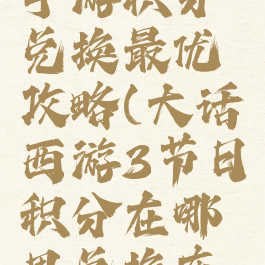 手游积分
兑换最优
攻略(大话
西游3节日
积分在哪
里兑换商